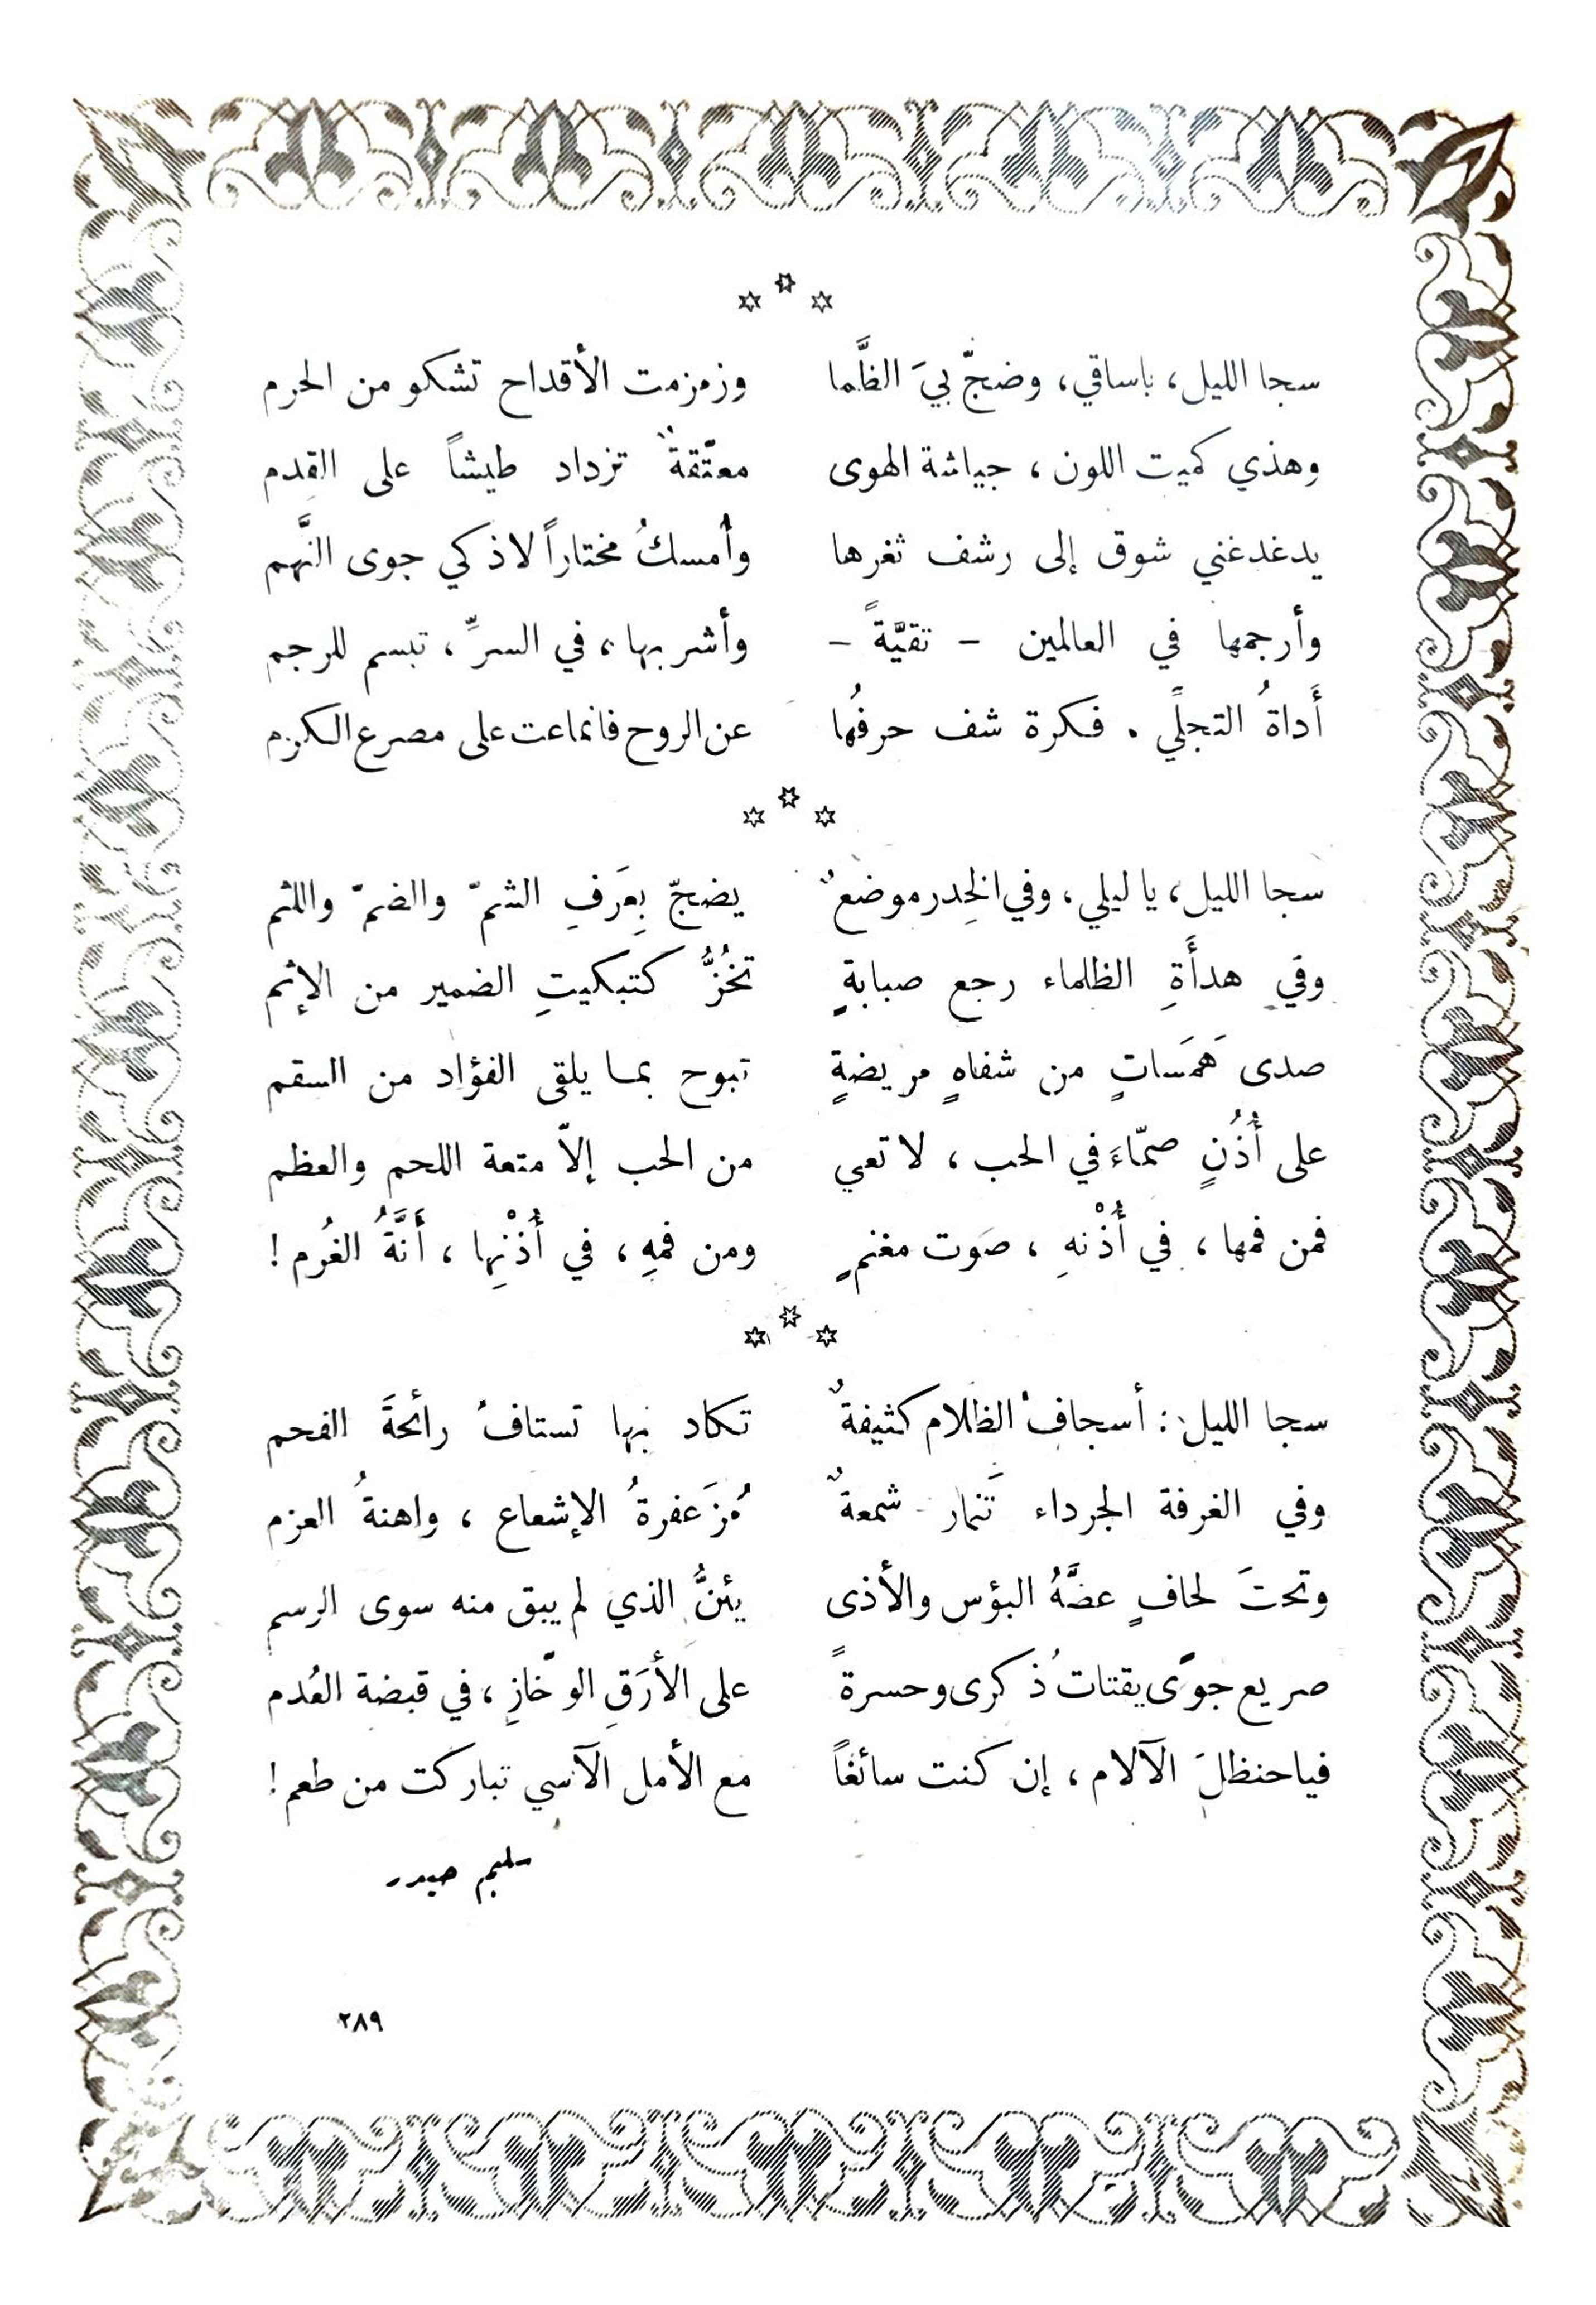 سجا الليل، ياساقي، وضجّ بيَ الظَّما وزمزمت الأقداح تشكو من الحرم
وهذي كميت اللون، جياشة الهوى معتّقةٌ تزداد طيشاً على القدم
يدغدغني شوق إلى رشف ثغرها وأُمسكُ مختاراً لاذكي جوى النَّهم
وأرجمها في العالمين - تقيَّةً - وأشربها، في السرِّ، تبسم للرجم
أَداةُ التجلِّي. فكرة شف حرفُها عن الروح فانماعت على مصرع الكرم
سجا الليل، يا ليلي، وفي الخِدر موضعٌ يضجّ بِعَرَفِ الشمّ والضمّ واللثم
وفي هدأَةِ الظلماء رجع صبابةٍ تخُزُّ كتبكيتِ الضمير من الإثم
صدى هَمَساتٍ من شفاهٍ مريضةٍ تبوح بما يلقى الفؤاد من السقم
على أُذُنٍ صمّاءَ في الحب، لا تعي من الحب إلاّ متعة اللحم والعظم
فمن فمها، في أُذْنهِ، صَوت مغنمٍ ومن فمهِ، في أُذْنِها، أَنَّةُ الغُرم!
سجا الليل: أسجافُ الظلام كثيفةٌ تكاد بها تستافُ رائحةَ الفحم
وفي الغرفة الجرداء تَنمار شمعةٌ مُزَعفرةُ الإشعاع، واهنةُ العزم
وتحتَ لحافٍ عضَّهُ البؤس والأذى يئنُّ الذي لم يبق منه سوى الرسم
صريع جوًى يقتاتُ ذكرى وحسرةً على الأرَقِ الوخّازِ، في قبضة العُدم
فياحنظلَ الآلام، إن كنت سائغاً مع الأمل الآسي تباركت من طعم!
سليم حيدر
٢٨٩